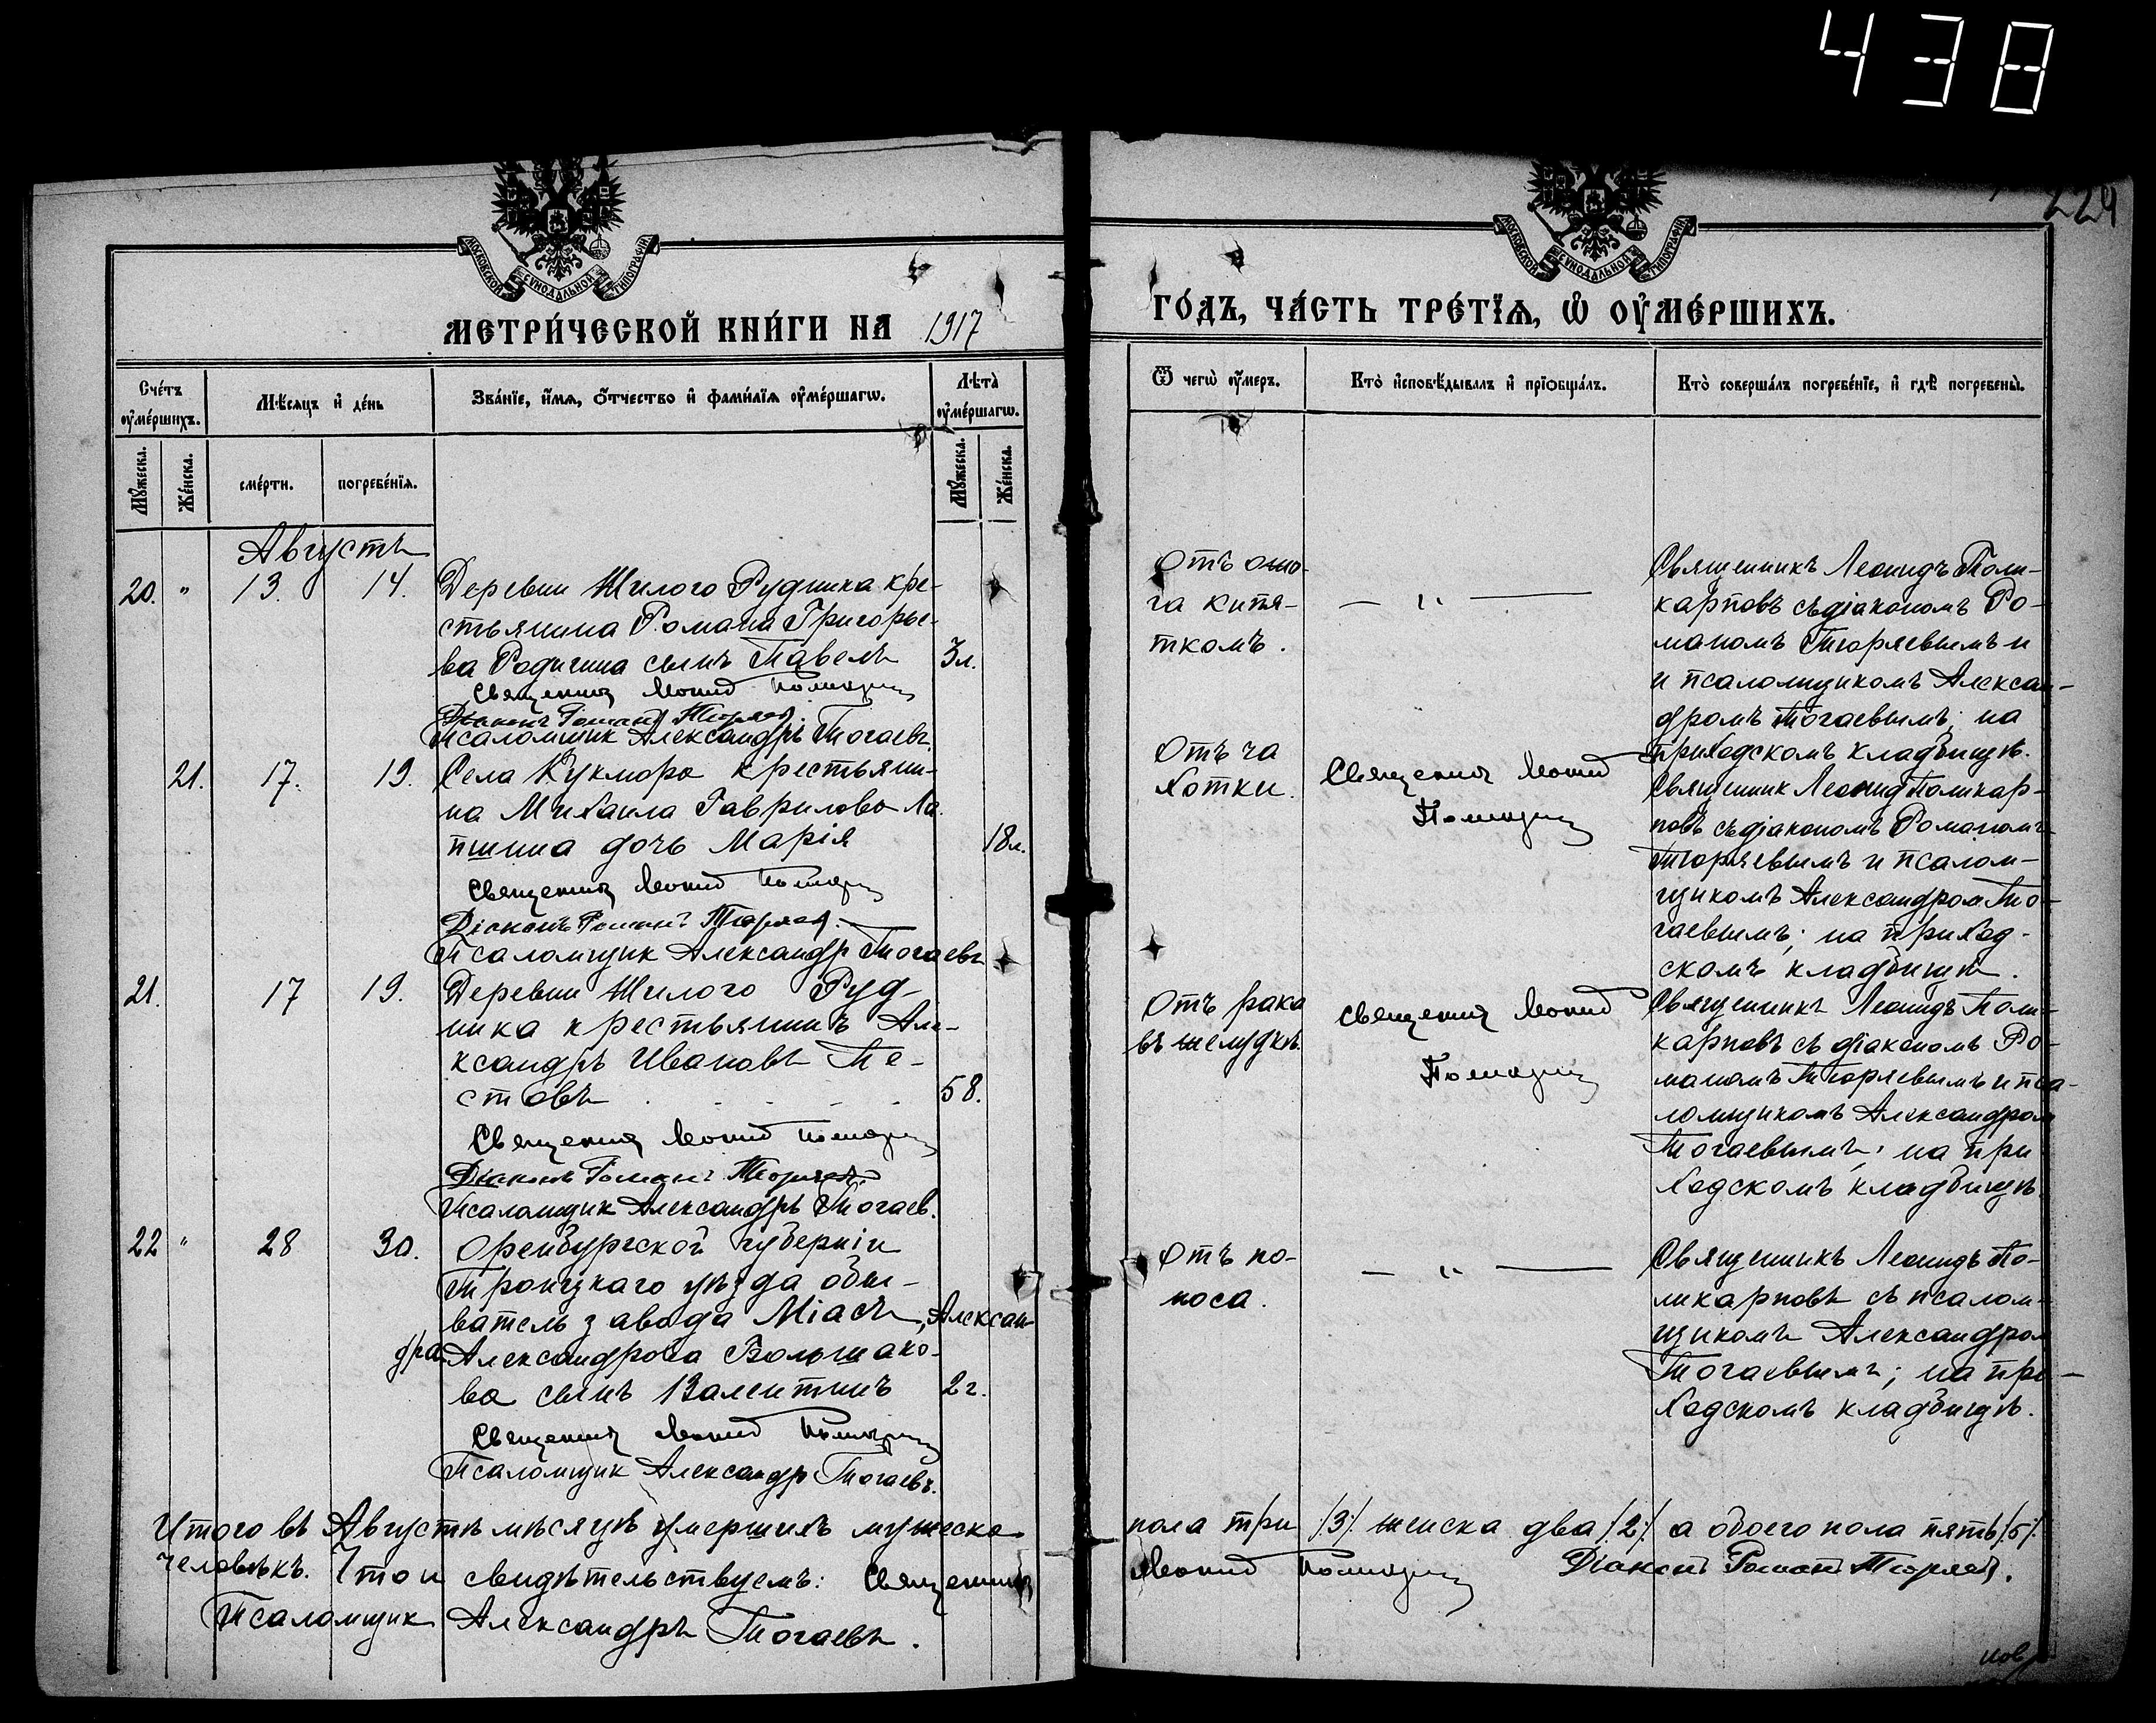 438
224
МОСКОВСКОЙ СѴНОДАЛЬНОЙ ТИПОГРАФІИ
МОСКОВСКОЙ СѴНОДАЛЬНОЙ ТИПОГРАФІИ
МЕТРИ́ЧЕСКОЙ КНИ́ГИ НА 1917
ГО́ДЪ, ЧА́СТЬ ТРЕ́ТЇѦ, Ѡ҆ ОУ҆МЕ́РШИХЪ.
Сче́тъ оу҆ме́ршихъ.
Мѣ́сяцъ и҆ де́нь
Зва́нїе, и҆́мѧ, ѻ҆́тчество и҆ фами́лїѧ оу҆ме́ршагѡ.
Лѣ́та оу҆ме́ршагѡ.
Ѿ чегѡ̀ оу҆́меръ.
Кто̀ и҆сповѣ́дывалъ и҆ прїѻбща́лъ.
Кто̀ соверша́лъ погребе́нїе, и҆ гдѣ̀ погребены̀.
Мꙋ́жеска.
Же́нска.
сме́рти.
погребе́нїѧ.
Мꙋ́жеска.
Же́нска.
Августъ
20. " 13. 14.
Деревни Жилого Рудника кре-
стьянина Романа Григорье-
ва Родигина сынъ Павелъ 3л.
Священник Леонид Поликарпов
Діаконъ Романъ Тюряев.
Псаломщик Александръ Тогаевъ.
Отъ ожо-
га кипя-
ткомъ.
— " —
Священникъ Леонидъ Поли-
карповъ съ діакономъ Ро-
маномъ Тюряевымъ и
и псаломщикомъ Алексан-
дромъ Тогаевымъ; на
приходскомъ кладбищѣ.
21. 17. 19.
Села Кукмора крестьяни-
на Михаила Гаврилова Ла-
пшина дочь Марія 18л.
Священник Леонид Поликарпов
Діаконъ Романъ Тюряев.
Псаломщик Александр Тогаевъ
Отъ ча
хотки.
Священник Леонид
Поликарпов
Священник Леонид Поликар-
повъ съ діакономъ Романомъ
Тюряевымъ и псалом-
щикомъ Александром То-
гаевымъ; на приход-
скомъ кладбищѣ.
21. 17 19.
Деревни Жилого Руд-
ника крестьянинъ Але-
ксандръ Ивановъ Пе-
стовъ 58.
Священник Леонид Поликарпов
Діаконъ Романъ Тюряев.
Псаломщик Александръ Тогаев.
Отъ рака
въ желудкѣ.
Священник Леонид
Поликарпов
Священникъ Леонидъ Поли-
карповъ съ діакономъ Ро-
маномъ Тюряевымъ и пса-
ломщикомъ Александром
Тогаевымъ; на при
ходскомъ кладбищѣ
22 " 28 30.
Оренбургской губерніи
Троицкаго уѣзда обы-
ватель завода Міасъ, Алексан-
дра Александрова Большако-
ва сынъ Валентинъ 2г.
Священник Леонид Поликарпов
Псаломщик Александр Тогаевъ.
Отъ по-
носа.
— " —
Священникъ Леонидъ По-
ликарповъ съ псалом-
щикомъ Александром
Тогаевымъ; на при-
ходскомъ кладбищѣ.
Итого въ Августѣ мѣсяцѣ умершихъ мужеска пола три /3/. женска два /2/. а обоего пола пять /5/.
человѣкъ. Что и свидѣтельствуемъ: Священник Леонид Поликарпов Діаконъ Романъ Тюряев.
Псаломщик Александръ Тогаевъ.